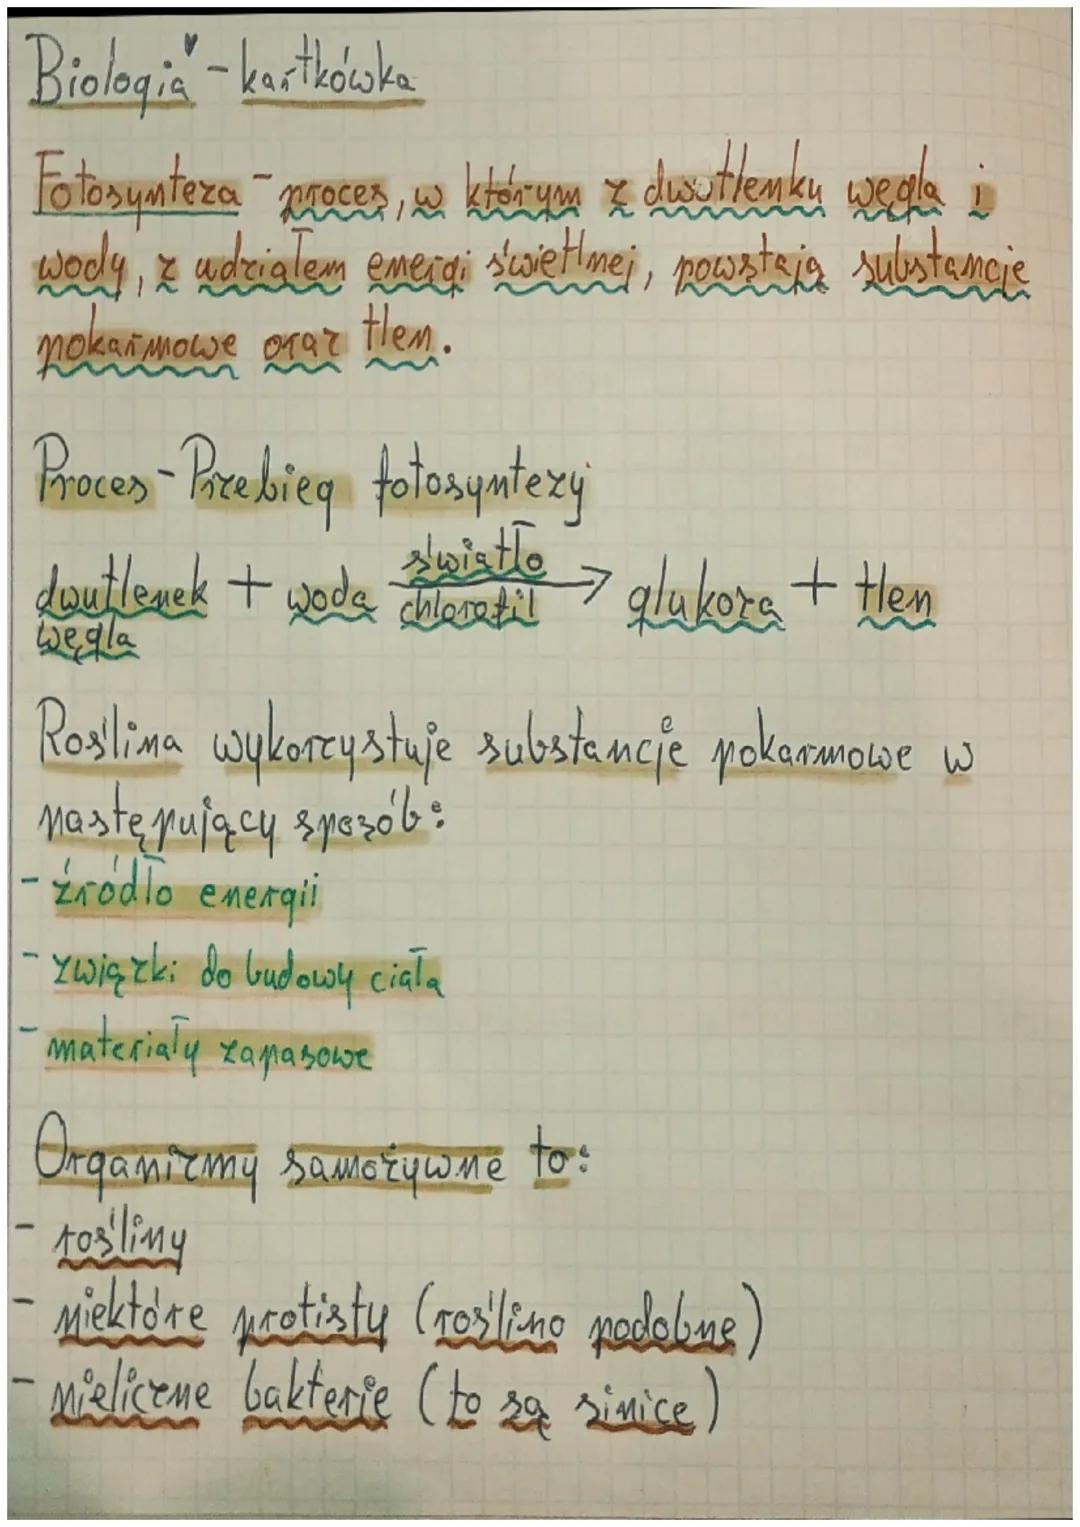 Biologia - kartkówka
Fotosynteza - proces, w którym z dwutlenku węgla i
wody, z udziałem energi świetlnej, powstają substancje
pokarmowe oraz tlen.
Proces - Przebieg fotosyntezy
światło
dwutlenek + woda → glukoza + tlen
węgla chlorofil
Roślina wykorzystuje substancje pokarmowe w
następujący sposób:
- źródło energii
- związki do budowy ciała
- materiały zapasowe
Organizmy samożywne to:
- rośliny
- niektóre protisty (roślino podobne)
- nieliczne bakterie (to są sinice)